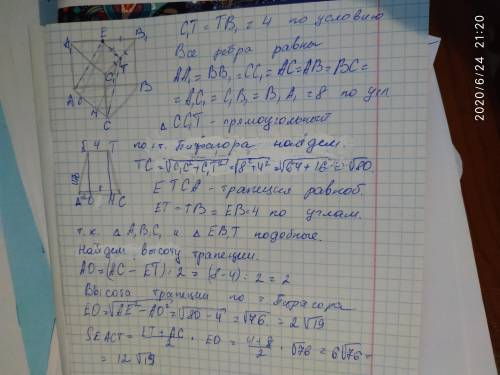 A E B₁
C₁ T
B
A O
H
C
C₁T = TB₁ = 4 по условию
Все ребра равны
AA₁ = BB₁ = CC₁ = AC = AB = BC =
= A₁C₁ = C₁B₁ = B₁A₁ = 8 по усл
△ CC₁T - прямоугольный
E 4 T
√80
A O H C
по т. Пифагора найдем.
TC = √C₁C² + C₁T² = √8² + 4² = √64 + 16 = √80.
ETCA - трапеция равноб.
ET = TB = EB = 4 по углам.
т.к. △ A₁B₁C₁ и △ EB₁T подобные.
Найдем высоту трапеции.
AO = (AC - ET) : 2 = (8 - 4) : 2 = 2
Высота трапеции по т. Пифагора
EO = √AE² - AO² = √80 - 4 = √76 = 2√19
SEACT = ET + AC / 2 · EO = 4 + 8 / 2 · √76 = 6√76 =
= 12√19
2020/6/24 21:20